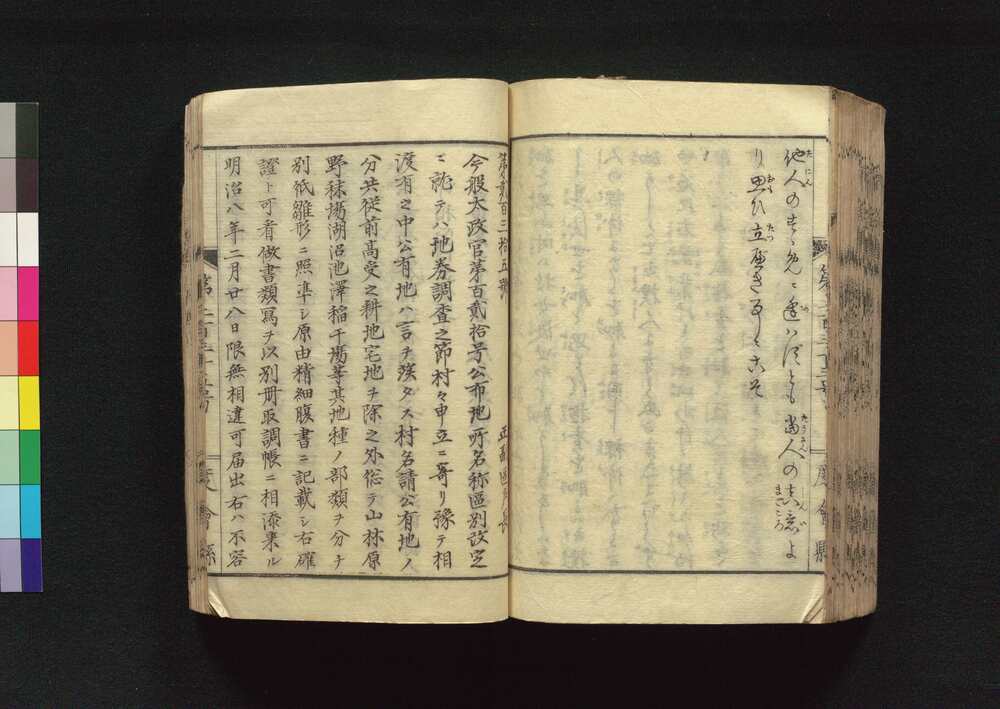 他人のすゝめニ逢ハずとも当人の真意よ
り思ひ立べき事とこそ
第二百三十三号
度會縣
第貳百三拾五號
正副區戸長
今般太政官第百貳拾号公布地所名称區別改定
ニ就テハ地券調査之節村々申立ニ寄リ豫テ相
渡有之中公有地ハ言ヲ俟タス村名請公有地ノ
分共従前高受之耕地宅地ヲ除之外俗テ山林原
野秣場湖沼池澤稲干場等其地種ノ部類ヲ分チ
別紙雛形ニ照準シ原由精細腹書ニ記載シ右確
證ト可看做書類寫ヲ以別冊取調帳ニ相添来ル
明治八年二月廿八日限無相違可届出右ハ不容
第二百三十五号
度會縣